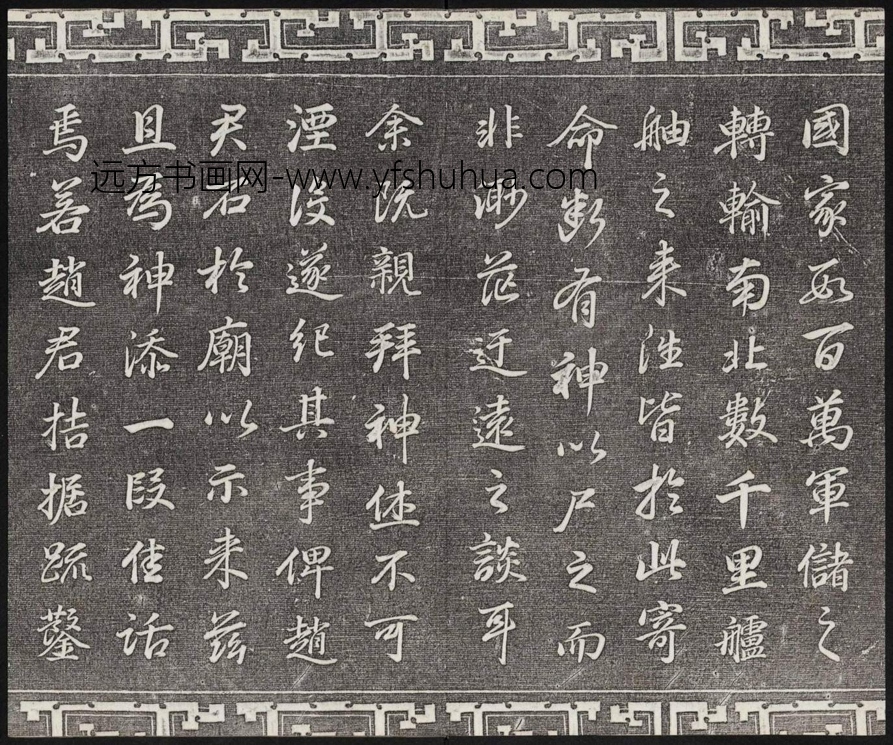 國家數百萬軍儲之
轉輸南北數千里艫
舳之来往皆於此寄
命斷有神以尸之而
非渺茫迂遠之談耳
余既親拜神庥不可
湮没遂紀其事俾趙
君石於廟以示来茲
且為神添一段佳話
焉若趙君拮据疏鑿
远方书画网-www.yfshuhua.com